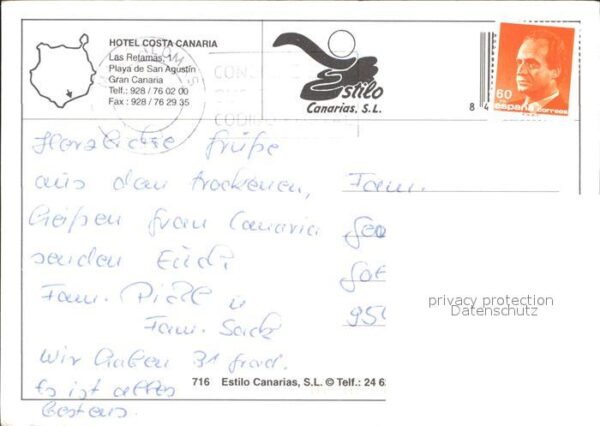 HOTEL COSTA CANARIA
Las Retamas,
Playa de San Agustín
Gran Canaria
Telf.: 928 / 76 02 00
Fax : 928 / 76 29 35
Estilo
Canarias, S.L.
8 4
60
españa correos
Herzliche Grüße
aus dem trockenen,
heißen Gran Canaria
senden Euch
Fam. u
Fam. Sack
Wir haben 31 Grad.
Es ist alles
bestens.
Fam.
95
privacy protection
Datenschutz
716 Estilo Canarias, S.L. © Telf.: 24 6